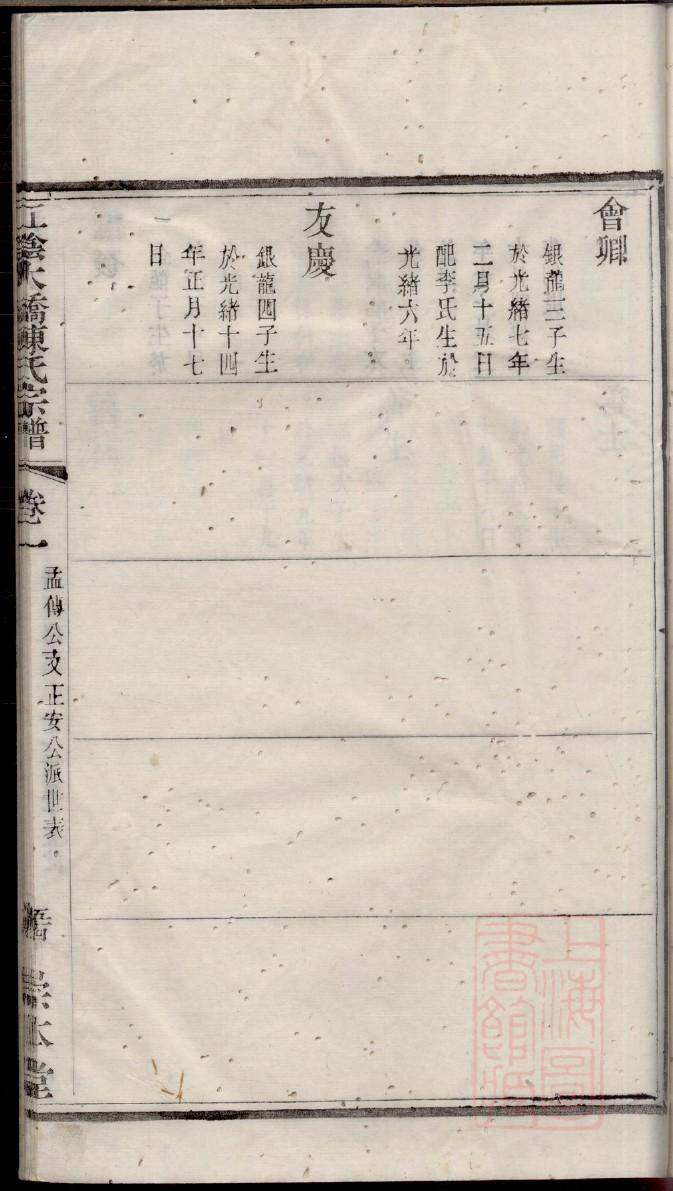 會卿
銀龍三子生
於光緒七年
二月十五日
配李氏生於
光緒六年。
友慶
銀龍四子生
於光緒十四
年正月十七
日
江陰大橋陳氏宗譜
卷一
孟傳公支正安公派世表
宗本堂
上海圖
書館藏